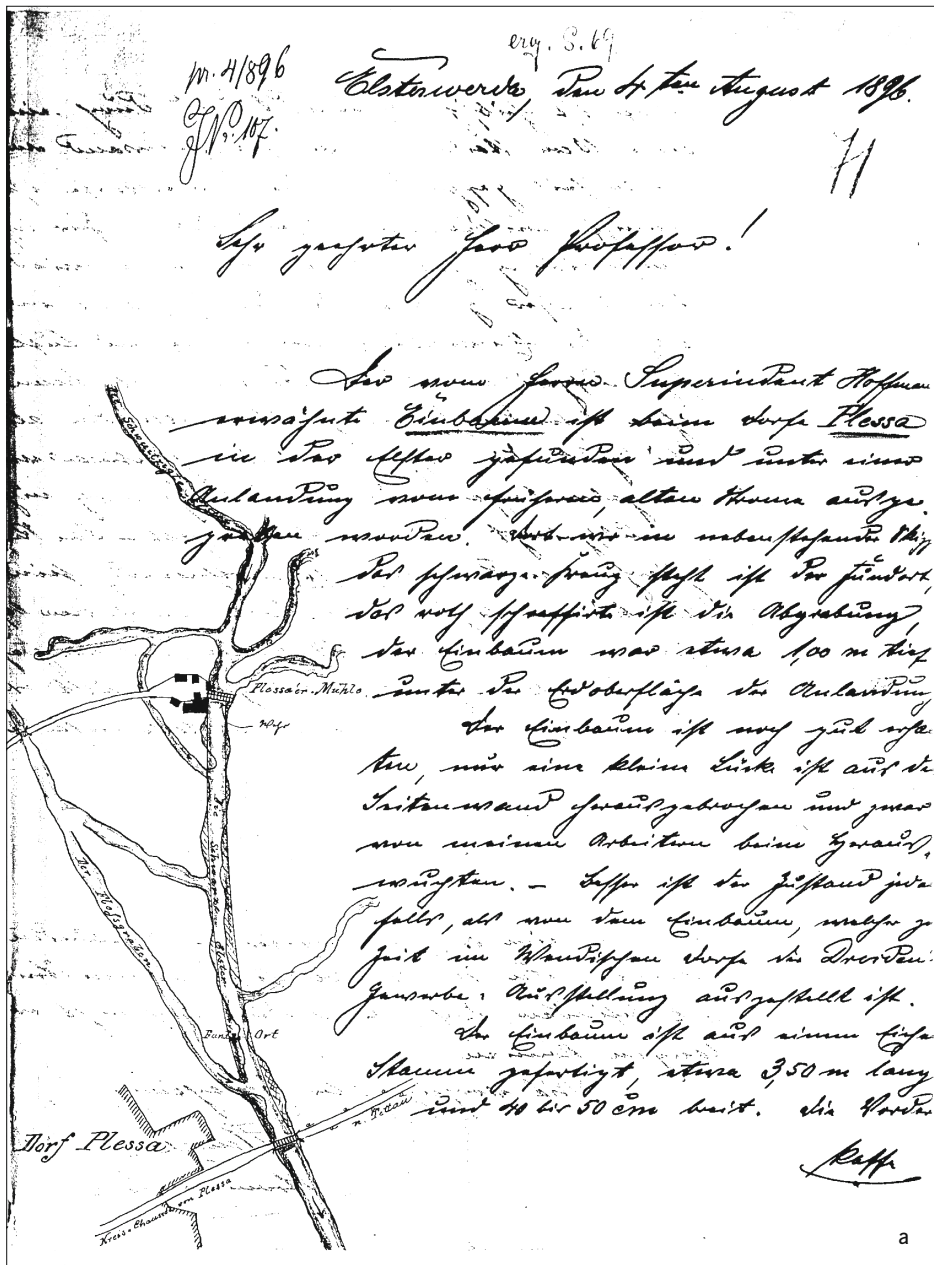 erg. S. 69
pr. 4/896
J.N. 107.
Elsterwerda, den 4ten August 1896.
Sehr geehrter Herr Professor!
Der vom Herrn Superindent Hoffman
erwähnte Einbaum ist beim Dorfe Plessa
in der Elster gefunden und unter einer
Anlandung vom frühern, alten Strome ausge-
graben worden. Dort wo in nebenstehender Skizz
das schwarze Kreuz steht ist der Fundort,
das roth schraffirte ist die Abgrabung,
der Einbaum war etwa 1,00 m tief
unter der Erdoberfläche der Anlandun
Der Einbaum ist noch gut erhal
ten, nur eine kleine Lücke ist aus de
Seitenwand herausgebrochen und zwar
von meinen Arbeitern beim Heraus-
wuchten. – Besser ist der Zustand jede
falls, als von dem Einbaum, welcher z.
Zeit im Wendischen Dorfe der Dresden.
Gewerbe-Ausstellung ausgestellt ist.
Der Einbaum ist aus einem Eiche
Stamm gefertigt, etwa 3,50 m lang
und 40 bis 50 cm breit. Die Vorder
Plessa'er-Mühle
Wehr
Die Schwarze Elster
Der Flossgraben
Fund-Ort
Dorf Plessa
Kreis-Chaussee von Plessa
n. Tettau
a